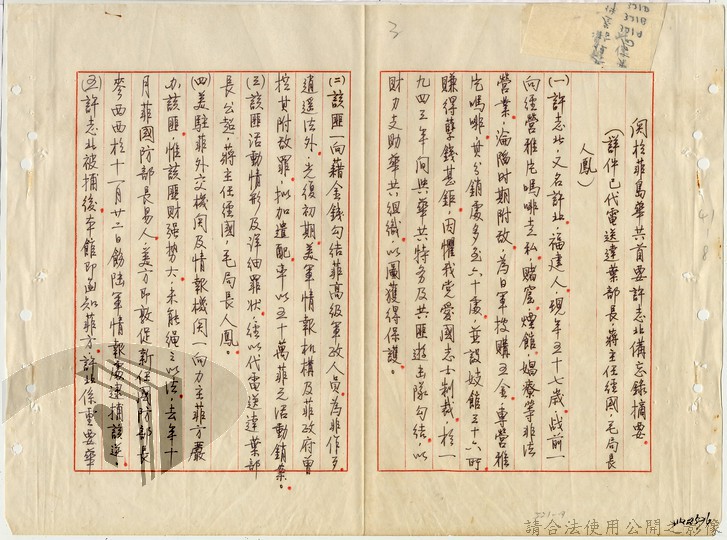 3
關於菲島華共首要許志北備忘錄摘要
（詳件已代電送達葉部長，蔣主任經國，毛局長
人鳳）
(一)許志北，又名許北，福建人，現年五十七歲，戰前一
向經營鴉片嗎啡走私，賭窟，煙館，娼寮等非法
營業，淪陷時期附敵，為日軍搜購五金，專營鴉
片嗎啡，其分銷處多至六十處，並設妓館三十六所
賺得孽錢甚鉅，因懼我黨愛國志士制裁，於一
九四三年間與華共特務及共匪遊擊隊勾結，以
財力支助華共組織，以圖獲得保護。
(二)該匪一向藉金錢勾結菲高級軍政人員，為非作歹
逍遙法外，光復初期美軍情報機構及菲政府曾
控其附敵罪，擬加遣配，卒以五十萬菲元活動銷案。
(三)該匪活動情形及詳細罪狀，經以代電送達葉部
長公超，蔣主任經國，毛局長人鳳。
(四)美駐菲外交機関及情報機関一向力主菲方嚴
办該匪，惟該匪財强勢大，未能繩之以法，去年十
月菲國防部長易人，美方即敦促新任國防部長
麥西西於十一月廿二日飭陸軍情報處逮捕該逆。
(五)許志北被捕後，本館即函知菲方，許北係重要華
請合法使用公開之影像